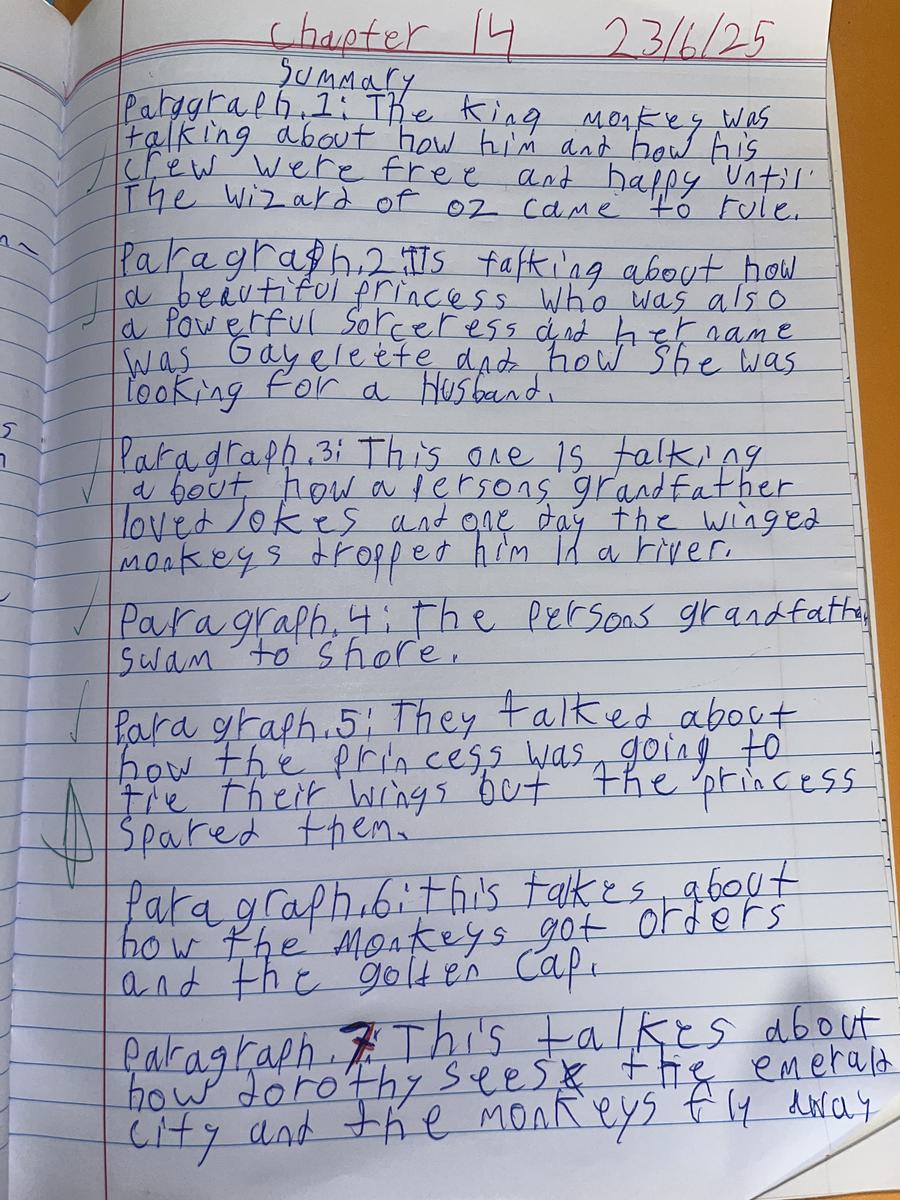 Chapter 14 23/6/25
Summary
Parggraph.1: The king monkey was
talking about how him and how his
crew were free and happy until
The wizard of oz came to rule.
Paragraph.2: Is talking about how
a beautiful princess who was also
a powerful sorceress and her name
was Gayeleete and how She was
looking for a Husband.
Paragraph.3: This one is talking
about how a persons grandfather
loved Jokes and one day the winged
monkeys dropped him in a river.
Paragraph.4: The persons grandfath
swam to shore.
Paragraph.5: They talked about
how the princess was going to
tie their wings but the princess
spared them.
Paragraph.6: this talkes about
how the Monkeys got orders
and the golden Cap.
Paragraph.7: This talkes about
how dorothy sees the emerald
city and the monkeys fly away